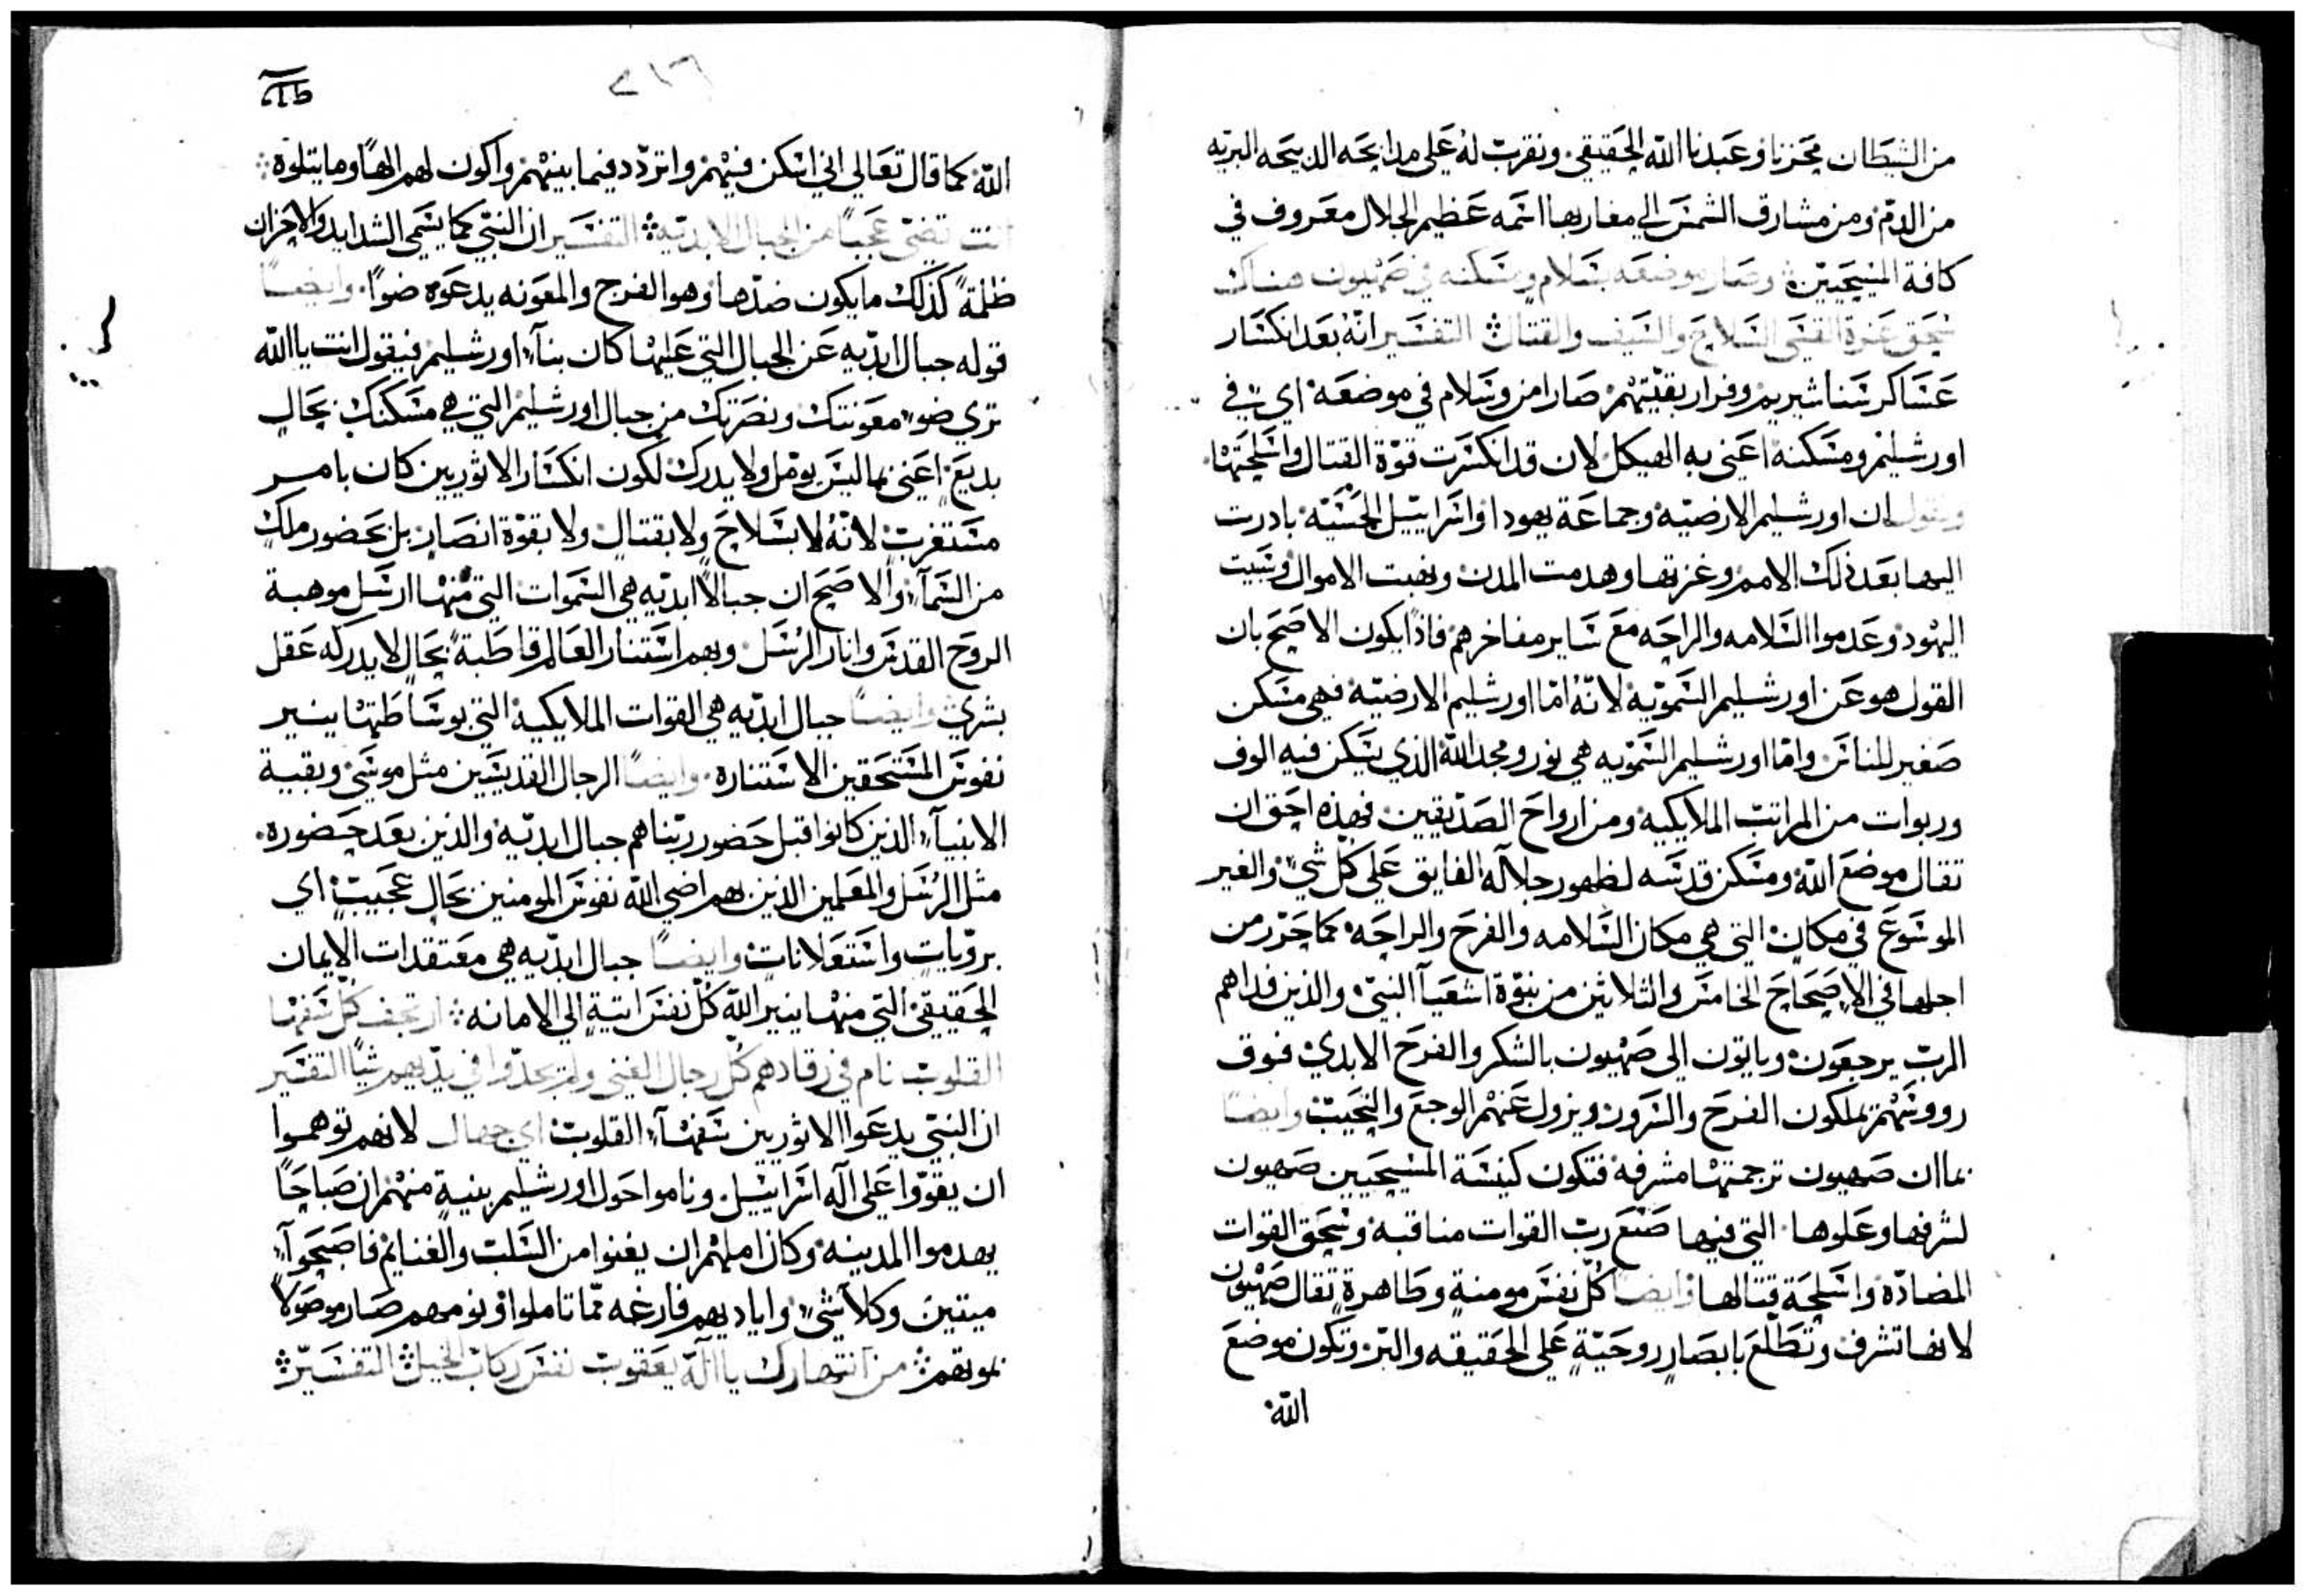 من الشيطان محزنا وعبدنا الله الحقيقي ونقرب له على مذابحه الذبيحه البريه
من الدم ومن مشارق الشمس الى مغاربها اسمه عظيم الجلال معروف في
كافة المسيحيين وصار موضعه بسلام ومسكنه في صهيون هناك
سحق عزة القسي السلاح والسيف والقتال التفسير انه بعد انكسار
عساكر سناشيريم وفرار بقيتهم صار امن وسلام في موضعه اي في
اورشليم ومسكنه اعني به الهيكل لان قد انكسرت قوة القتال واسلحتها
ونقول ان اورشليم الارضيه وجماعة يهودا واسراييل الحسيه بادرت
اليها بعد ذلك الامم وغزتها وهدمت المدن ونهبت الاموال وسبيت
اليهود وعدموا السلامه والراحه مع ساير مفاخرهم فاذا يكون الاصح بان
القول هو عن اورشليم السمويه لانه اما اورشليم الارضيه فهي مسكن
صغير للناس واما اورشليم السمويه هي نور ومجد الله الذي يسكن فيه الوف
وربوات من المراتب الملايكيه ومن ارواح الصديقين فهذه احق ان
تقال موضع الله ومسكن قدسه لظهور جلاله الفايق على كل شي والغير
الموسوع في مكان التي هي مكان السلامه والفرح والراحه كما حرر من
اجلها في الاصحاح الخامس والثلاثين من نبوة اشعيا النبي والذين فداهم
الرب يرجعون وياتون الى صهيون بالشكر والفرح الابدي فوق
رووسهم يملكون الفرح والسرور ويزول عنهم الوجع والنحيب وايضا
بما ان صهيون ترجمتها مشرفه فتكون كنيسة المسيحيين صهيون
لشرفها وعلوها التي فيها صنع رب القوات مناقبه وسحق القوات
المضاده واسلحة قتالها وايضا كل نفس مومنة وطاهرة تقال صهيون
لانها تشرف وتطلع بابصار روحية على الحقيقه والبر وتكون موضع
الله
الله كما قال تعالى اني اسكن فيهم واتردد فيما بينهم واكون لهم الها وما يتلوه
انت تضي عجبا من الجبال الابديه التفسير ان النبي كما يسمي الشدايد والاحزان
ظلمة كذلك ما يكون ضدها وهو الفرج والمعونه يدعوه ضوا وايضا
قوله جبال ابديه عن الجبال التي عليها كان بنآ اورشليم فيقول انت يا الله
تري ضو معونتك ونصرتك من جبال اورشليم التي هي مسكنك بحال
بديع اعني بما ليس يومل ولا يدرك لكون انكسار الاثوريين كان بامر
مستغرب لانه لا بسلاح ولا بقتال ولا بقوة انصار بل بحضور ملك
من السمآ والاصح ان جبالا ابديه هي السموات التي منها ارسل موهبة
الروح القدس وانار الرسل وبهم استنار العالم قاطبة بحال لا يدركه عقل
بشري وايضا جبال ابديه هي القوات الملايكيه التي بوساطتها ينير
نفوس المستحقين الاستناره وايضا الرجال القديسين مثل موسي وبقية
الانبيآ الذين كانوا قبل حضور ربنا هم جبال ابديه والذين بعد حضوره
مثل الرسل والمعلمين الذين بهم اضي الله نفوس المومنين بحال عجيب اي
برويات واستعلانات وايضا جبال ابديه هي معتقدات الايمان
الحقيقي التي منها ينير الله كل نفس اتية الى الامانه ارتجف كل سفها
القلوب نام في رقادهم كل رجال الغني ولم يجدوا في يديهم شيا التفسير
ان النبي يدعوا الاثوريين سفهآ القلوب اي جهال لانهم توهموا
ان يقووا على اله اسراييل وناموا حول اورشليم بنية منهم ان صباحا
يهدموا المدينه وكان املهم ان يغنوا من السلب والغنايم فاصبحوا
ميتين وكلا شي واياديهم فارغه مما تاملوا ونومهم صار موصولا
بموتهم من انتهارك يا اله يعقوب نفس ركاب الخيل التفسير